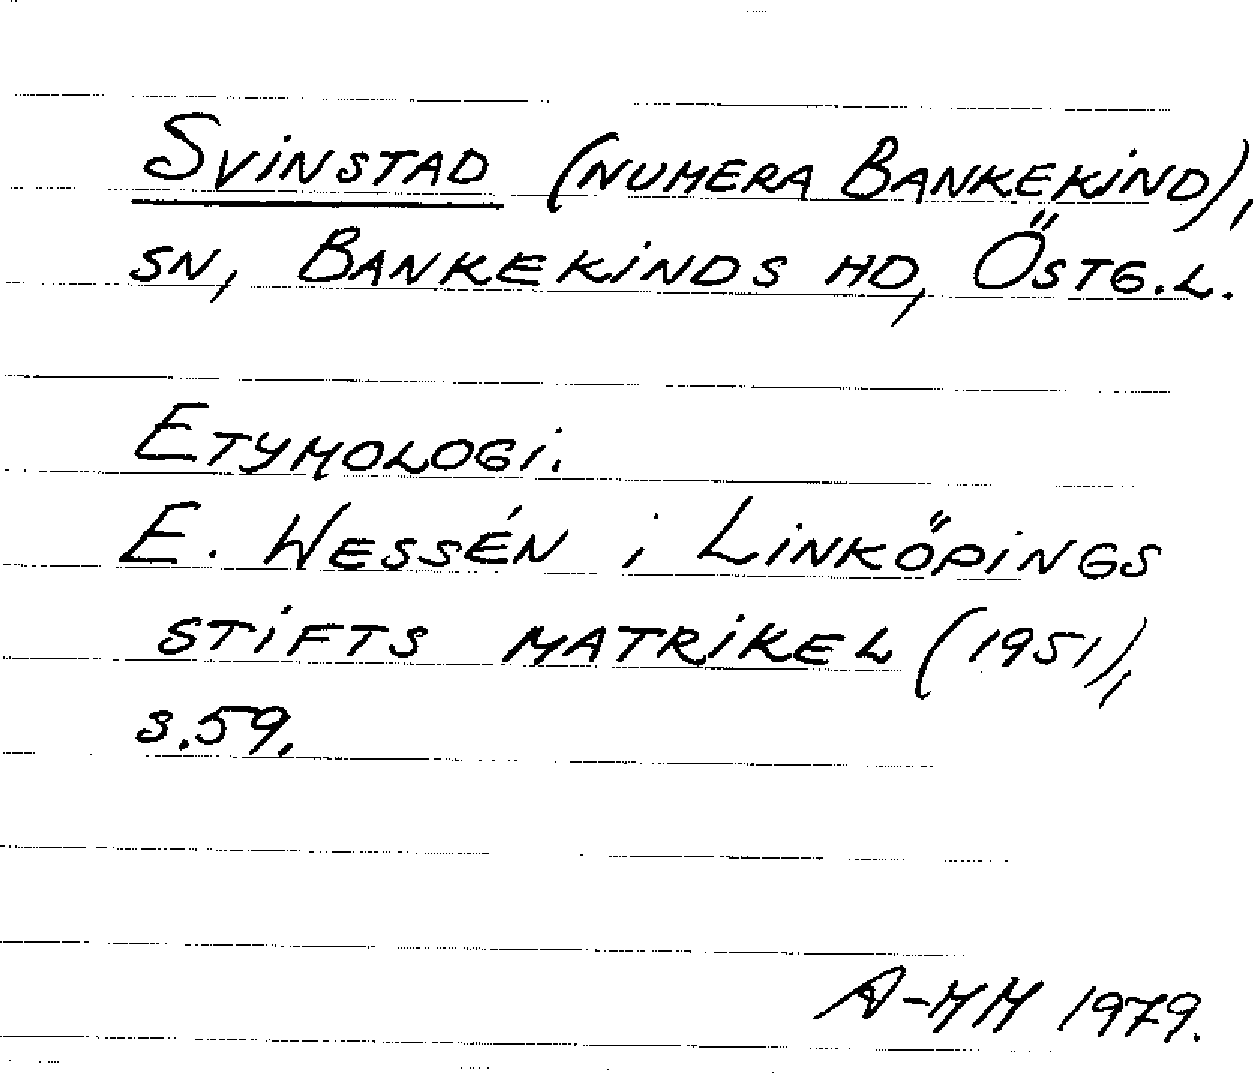 Svinstad (numera Bankekind),
sn, Bankekinds hd, Östg.l.
Etymologi.
E. Wessén i Linköpings
stifts matrikel (1951),
s.59.
A-MH 1979.